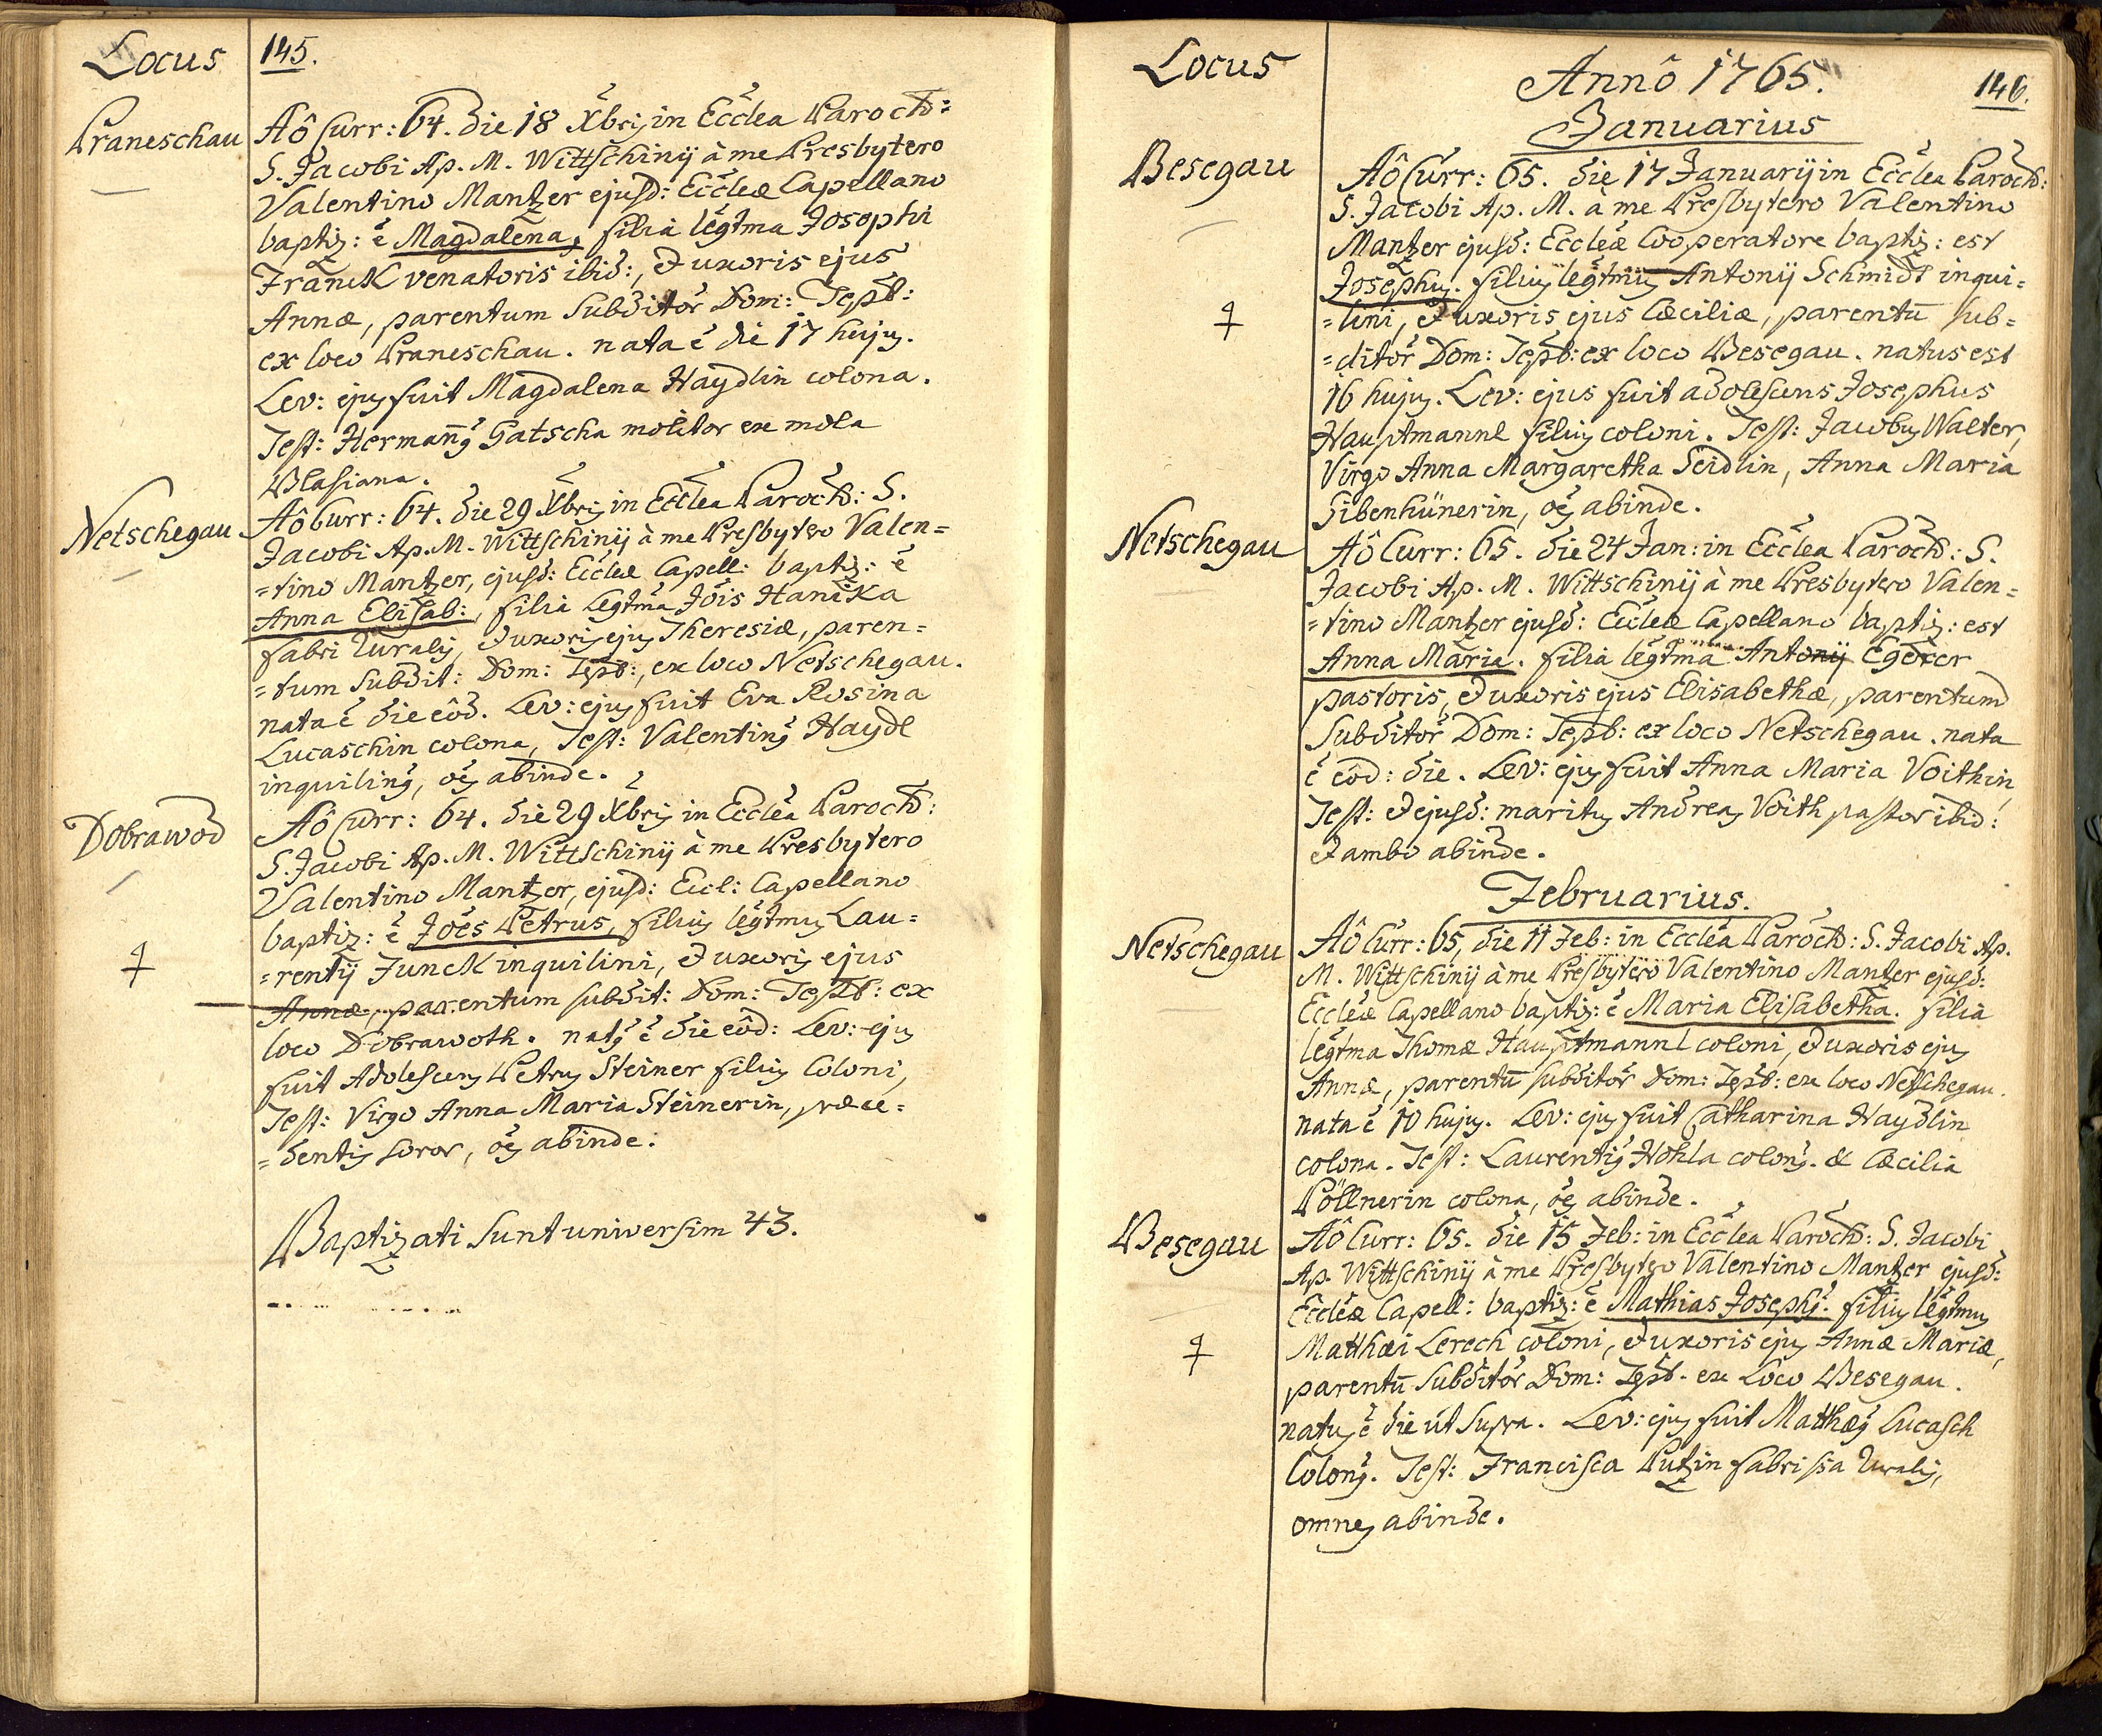 Locus
145.
Praneschau
Aô Curr: 64. die 18 Xbrij in Eccľea Paroch:
S. Jacobi Ap. M. Wittschinij à me Presbytero
Valentino Mantzer ejusd: Eccľeæ Capellano
baptiz: ẽ Magdalena, filia legťma Josephi
Franck venatoris ibid:, & uxoris ejus
Annæ, parentum Subditoř Dom: Tepl:
ex loco Praneschau. nata ẽ die 17 hujus.
Lev: ejus fuit Magdalena Haydlin colona.
Test: Hermannus Gatscha molitor ex mola
Blasiana.
Netschegau
Aô Curr: 64. die 29 Xbris in Eccľea Paroch: S.
Jacobi Ap. M. Wittschinij à me Presbytero Valen=
=tino Mantzer, ejusd: Eccľeæ Capell: baptiz: ẽ
Anna Elisab:, filia Legťma Jõis Hanika
fabri Ruralis, & uxoris ejus Theresiæ, paren=
=tum Subdit: Dom: Tepl:, ex loco Netschegau.
nata ẽ die eôd. Lev: ejus fuit Eva Rosina
Lucaschin colona, Test: Valentinus Haydl
inquilinus, oẽs abinde.
Dobrawod
Aô Curr: 64. die 29 Xbris in Eccľea Paroch:
S. Jacobi Ap. M. Wittschinij à me Presbytero
Valentino Mantzer, ejusd: Eccl: Capellano
baptiz: ẽ Jões Petrus, filius legťmus Lau=
=rentij Junck inquilini, & uxoris ejus
Annæ, parentum subdit: Dom: Tepl: ex
loco Dobrawoth. natus ẽ die eôd: Lev: ejus
fuit Adolescens Petrus Steiner filius Coloni,
Test: Virgo Anna Maria Steinerin, præce=
=dentis soror, oẽs abinde.
Baptizati Sunt universim 43.
Locus
Annô 1765.
146.
Januarius
Besegau
Aô Curr: 65. die 17 Januarij in Eccľea Paroch:
S. Jacobi Ap. M. à me Presbytero Valentino
Mantzer ejusd: Eccľeæ Cooperatore baptiz: est
Josephus. filius legťmus Antonij Schmidt inqui=
=lini, & uxoris ejus Cæciliæ, parentũ sub=
=ditoř Dom: Tepl: ex loco Besegau. natus est
16 hujus. Lev: ejus fuit adolescens Josephus
Hauptmannl filius coloni. Test: Jacobus Walter,
Virgo Anna Margaretha Seidlin, Anna Maria
Sibenhünerin, oẽs abinde.
Netschegau
Aô Curr: 65. die 24 Jan: in Eccľea Paroch: S.
Jacobi Ap. M. Wittschinij à me Presbytero Valen=
=tino Mantzer ejusd: Eccľeæ Capellano baptiz: est
Anna Maria. filia legťma Antonij Egerer
pastoris, & uxoris ejus Elisabethæ, parentum
Subditoř Dom: Tepl: ex loco Netschegau. nata
ẽ eôd: die. Lev: ejus fuit Anna Maria Voithin,
Test: & ejusd: maritus Andreas Voith pastor ibid:
& ambo abinde.
Februarius.
Netschegau
Aô Curr: 65, die 11 Feb: in Eccľea Paroch: S. Jacobi Ap.
M. Wittschinij à me Presbytero Valentino Mantzer ejusd:
Eccľeæ Capellano baptiz: ẽ Maria Elisabetha. filia
legťma Thomæ Hauptmannl coloni, & uxoris ejus
Annæ, parentũ subditoř Dom: Tepl: ex loco Netschegau.
nata ẽ 10 hujus. Lev: ejus fuit Catharina Haydlin
colona. Test: Laurentius Hohla colonus. & Cæcilia
Pöllnerin colona, oẽs abinde.
Besegau
Aô Curr: 65. die 15 Feb: in Eccľea Paroch: S. Jacobi
Ap. Wittschinij à me Presbytero Valentino Mantzer ejusd:
Eccľeæ Capell: baptiz: ẽ Mathias Josephus. filius legťmus
Matthæi Lerech coloni, & uxoris ejus Annæ Mariæ,
parentũ Subditoř Dom: Tepl. ex Loco Besegau.
natus ẽ die ut Supra. Lev: ejus fuit Matthæus Lucasch
Colonus. Test: Francisca Putzin fabrissa Ruralis,
omnes abinde.